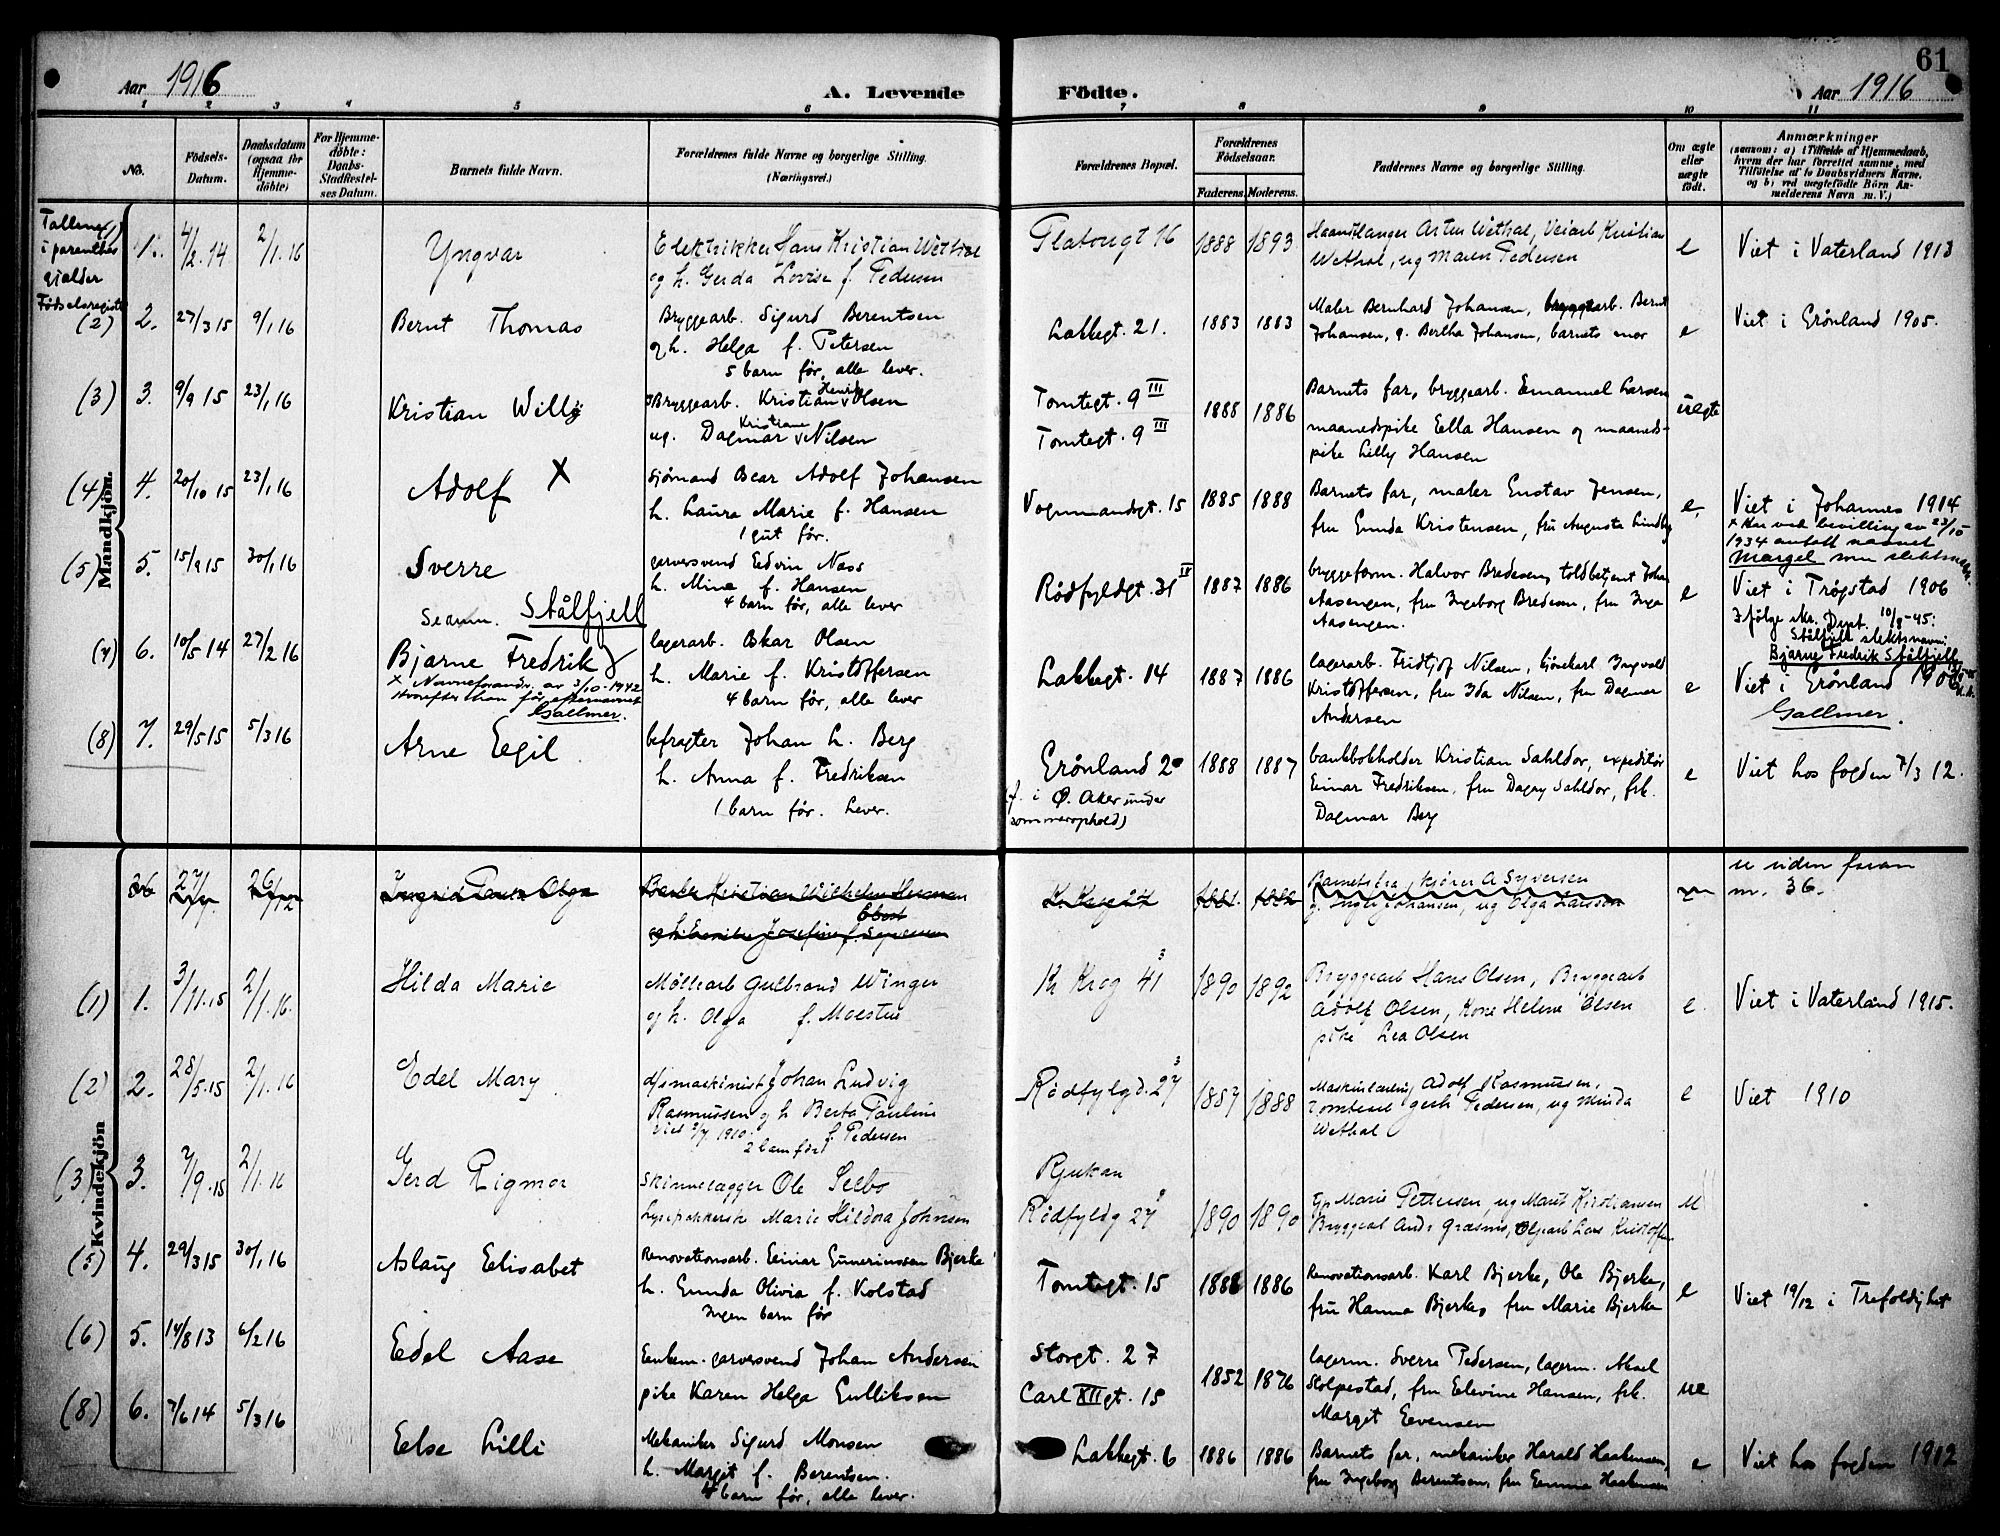 61
Aar 1916 A. Levende Födte. Aar 1916
1 2 3 4 5 6 7 8 9 10 11
No.
Födsels-
Datum.
Daabsdatum
(ogsaa for
Hjemme-
döbte)
For Hjemme-
döbte:
Daabs-
Stadfæstel-
ses Datum.
Barnets fulde Navn.
Forældrenes fulde Navne og borgerlige Stilling.
(Næringsvei.)
Forældrenes Bopæl.
Forældrenes
Födselsaar.
Faderens. Moderens.
Faddernes Navne og borgerlige Stilling.
Om ægte
eller
uægte
födt.
Anmærkninger
(saasom: a) i Tilfælde af Hjemmedaab,
hvem der har forrettet samme, med
Tilföielse af to Daabsvidners Navne,
og b) ved uægtefödte Börn An-
melderens Navn m. V.)
Tallene ()
i parenthes
gjælder
Fødselsregister
Mandkjön.
1. 4/2.14 2/1.16 Yngvar
Elektriker Hans Kristian Wethal
og h. Gerda Lovise f. Pedersen
1888 1893
Wethal, ug Maren Pedersen
e Viet i Vaterland 1913
(2) 2. 27/3 15 9/1 16 Bernt Thomas
Bryggearb. Sigurd Berentsen
og h. Helga f. Petersen
5 barn før, alle lever.
Lakkegt. 21. 1883 1883
Maler Bernhard Johansen, bryggearb. Bernt
Johansen, g. Bertha Johansen, barnets mor
e Viet i Grønland 1905.
(3) 3. 9/9 15 23/1 16 Kristian Willy
Bryggearb. Kristian Henrik Olsen
ug. Dagmar Kristiane Nilsen
Tomtegt. 9 III
Tomtegt. 9 III
1888 1886
Barnets far, bryggearb. Emanuel Larsen
maanedspike Ella Hansen og maaneds-
pike Lilly Hansen
uegte
(4) 4. 20/10 15 23/1 16 Adolf X
Sjømand Oscar Adolf Johansen
h. Laura Marie f. Hansen
1 gut før.
Vognmandsgt. 15 1885 1888
Barnets far, maler Gustav Jensen,
fru Gunda Kristensen, fru Augusta Lindby
e, Viet i Johannes 1914
x Har ved bevilling av 23/10
1934 antatt navnet
Margel som slektsnavn.
(5) 5. 15/9 15 30/1 16 Sverre
garversvend Edvin Næss
h. Mina f. Hansen
4 barn før, alle lever
Rødfyldgt. 31 IV 1887 1886
bryggeform. Halvor Bredesen, toldbetjent Johan
Aasengen, fru Ingeborg Bredesen, fru Inga
Aasengen.
e Viet i Trøgstad 1906
Stålfjell
Ifølge skr. Dept. 10/8-45:
Stålfjell slektsnavn:
Bjarne Fredrik Stålfjell
(7) 6. 10/5 14 27/2 16 Bjarne Fredrik
x Navneforandr. av 3/10-1942
hvorefter han får efternavnet
Gallmer.
lagerarb. Oskar Olsen
h. Marie f. Kristoffersen
4 barn før, alle lever
Lakkegt. 14 1887 1886
lagerarb. Fridtjof Nilsen, kjørekarl Ingvald
Kristoffersen, fru Ida Nilsen, fru Dagmar
Andersen
e Viet i Grønland 1906
Gallmer.
(8) 7. 29/5 15 5/3 16 Arne Egil
befragter Johan L. Berg
h. Anna f. Fredriksen
1 barn før. Lever.
Grønland 2
(f. i Ø. Aker under
sommerophold)
1888 1887
bankbokholder Kristian Sahldor, expeditør
Einar Fredriksen, fru Dagny Sahldor, frk.
Dagmar Berg
e Viet hos fogden 7/3 12.
Kvindekjön
36 27/7 26/12 Ingrid Paula Olga
Kristian Wilhelm Herman
Ebert
1881 1882
Barnets fra, kjører A Syversen
g. Inger Johansen, ug Olga Larsen
se siden foran
nr. 36.
(1) 1. 3/11.15 2/1.16. Hilda Marie
Møllearb Gulbrand Winger
og h. Olga f. Moestue
Kr Krog 41 3 1890 1892
Bryggearb Hans Olsen, Bryggearb
Adolf Olsen, Kone Helene Olsen
pike Lea Olsen
e. Viet i Vaterland 1915.
(2) 2. 28/5.15 2/1.16 Edel Mary
d/s maskinist Johan Ludvig
Rasmussen og h Berta Pauline
f. Pedersen
viet 2/7 1910.
2 barn før
Rødfylgd. 27 3 1887 1888
Maskinlærling Adolf Rasmussen,
Pedersen, ug Minda
Wethal
e Viet 1910
(3) 3. 7/9.15 2/1.16 Gerd Rigmor
Skinnelægger Ole Seebo
Marie Hildora Johnsen
Rjukan
Rødfyldg 27
1890 1890
Marie Pettersen, ug Marit Kristiansen
u
(5) 4. 29/3 15 30/1 16 Aslaug Elisabet
Renovationsarb. Einar Gunerinssen Bjerke
h. Gunda Olivia f. Kolstad
Ingen barn før
Tomtegt. 15 1888 1886
Renovationsarb. Karl Bjerke, Ole Bjerke,
fru Hanna Bjerke, fru Marie Bjerke
e Viet 19/12 i Trefoldighet
(6) 5. 14/8 13 6/2 16 Edel Aase
Enkem. garversvend Johan Andersen
pike Karen Helga Gulliksen
Storgt. 27
Carl XII gt. 15
1852 1876
lagerm. Sverre Pedersen, lagerm. Aksel
Stolpestad, fru Elevine Hansen, frk.
Margit Evensen
ue
(8) 6. 7/6 14 5/3 16 Else Lilli
Mekaniker Sigurd Monsen
h. Margit f. Berentsen.
4 barn før, alle lever.
Lakkegt. 6 1886 1886
Barnets far, mekaniker Harald Haakensen,
fru Ingeborg Berentsen, fru Emma Haakensen
e Viet hos fogden 1912